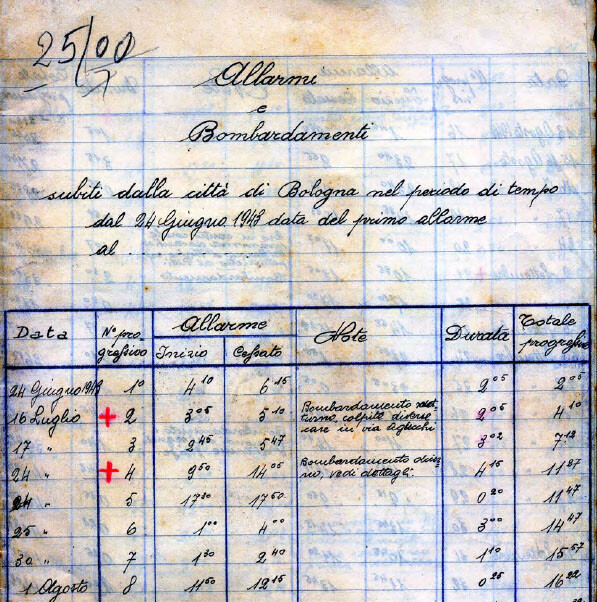 25/00
7
Allarmi
e
Bombardamenti
subiti dalla città di Bologna nel periodo di tempo
dal 24 Giugno 1943 data del primo allarme
al . . . . . . . . .
Data N° pro- Allarme Note Durata Totale
gressivo Inizio Cessato progressivo
24 Giugno 1943 1° 4 10 6 15 2 05 2 05
16 Luglio + 2 3 05 5 10 Bombardamento not- 2 05 4 10
turno, colpite diverse
case in via Agucchi
17 " 3 2 45 5 47 3 02 7 12
24 " + 4 9 50 14 05 Bombardamento diur- 4 15 11 27
no, vedi dettagli.
24 " 5 17 30 17 50 0 20 11 47
25 " 6 1 00 4 00 3 00 14 47
30 " 7 1 30 2 40 1 10 15 57
1 Agosto 8 11 50 12 15 0 25 16 22